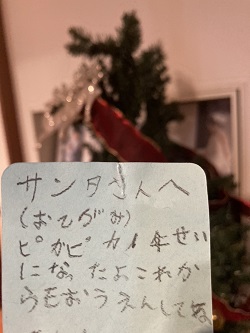 サンタさんへ
(おてがみ)
ピカピカ1年せい
になったよこれか
らもおうえんしてね